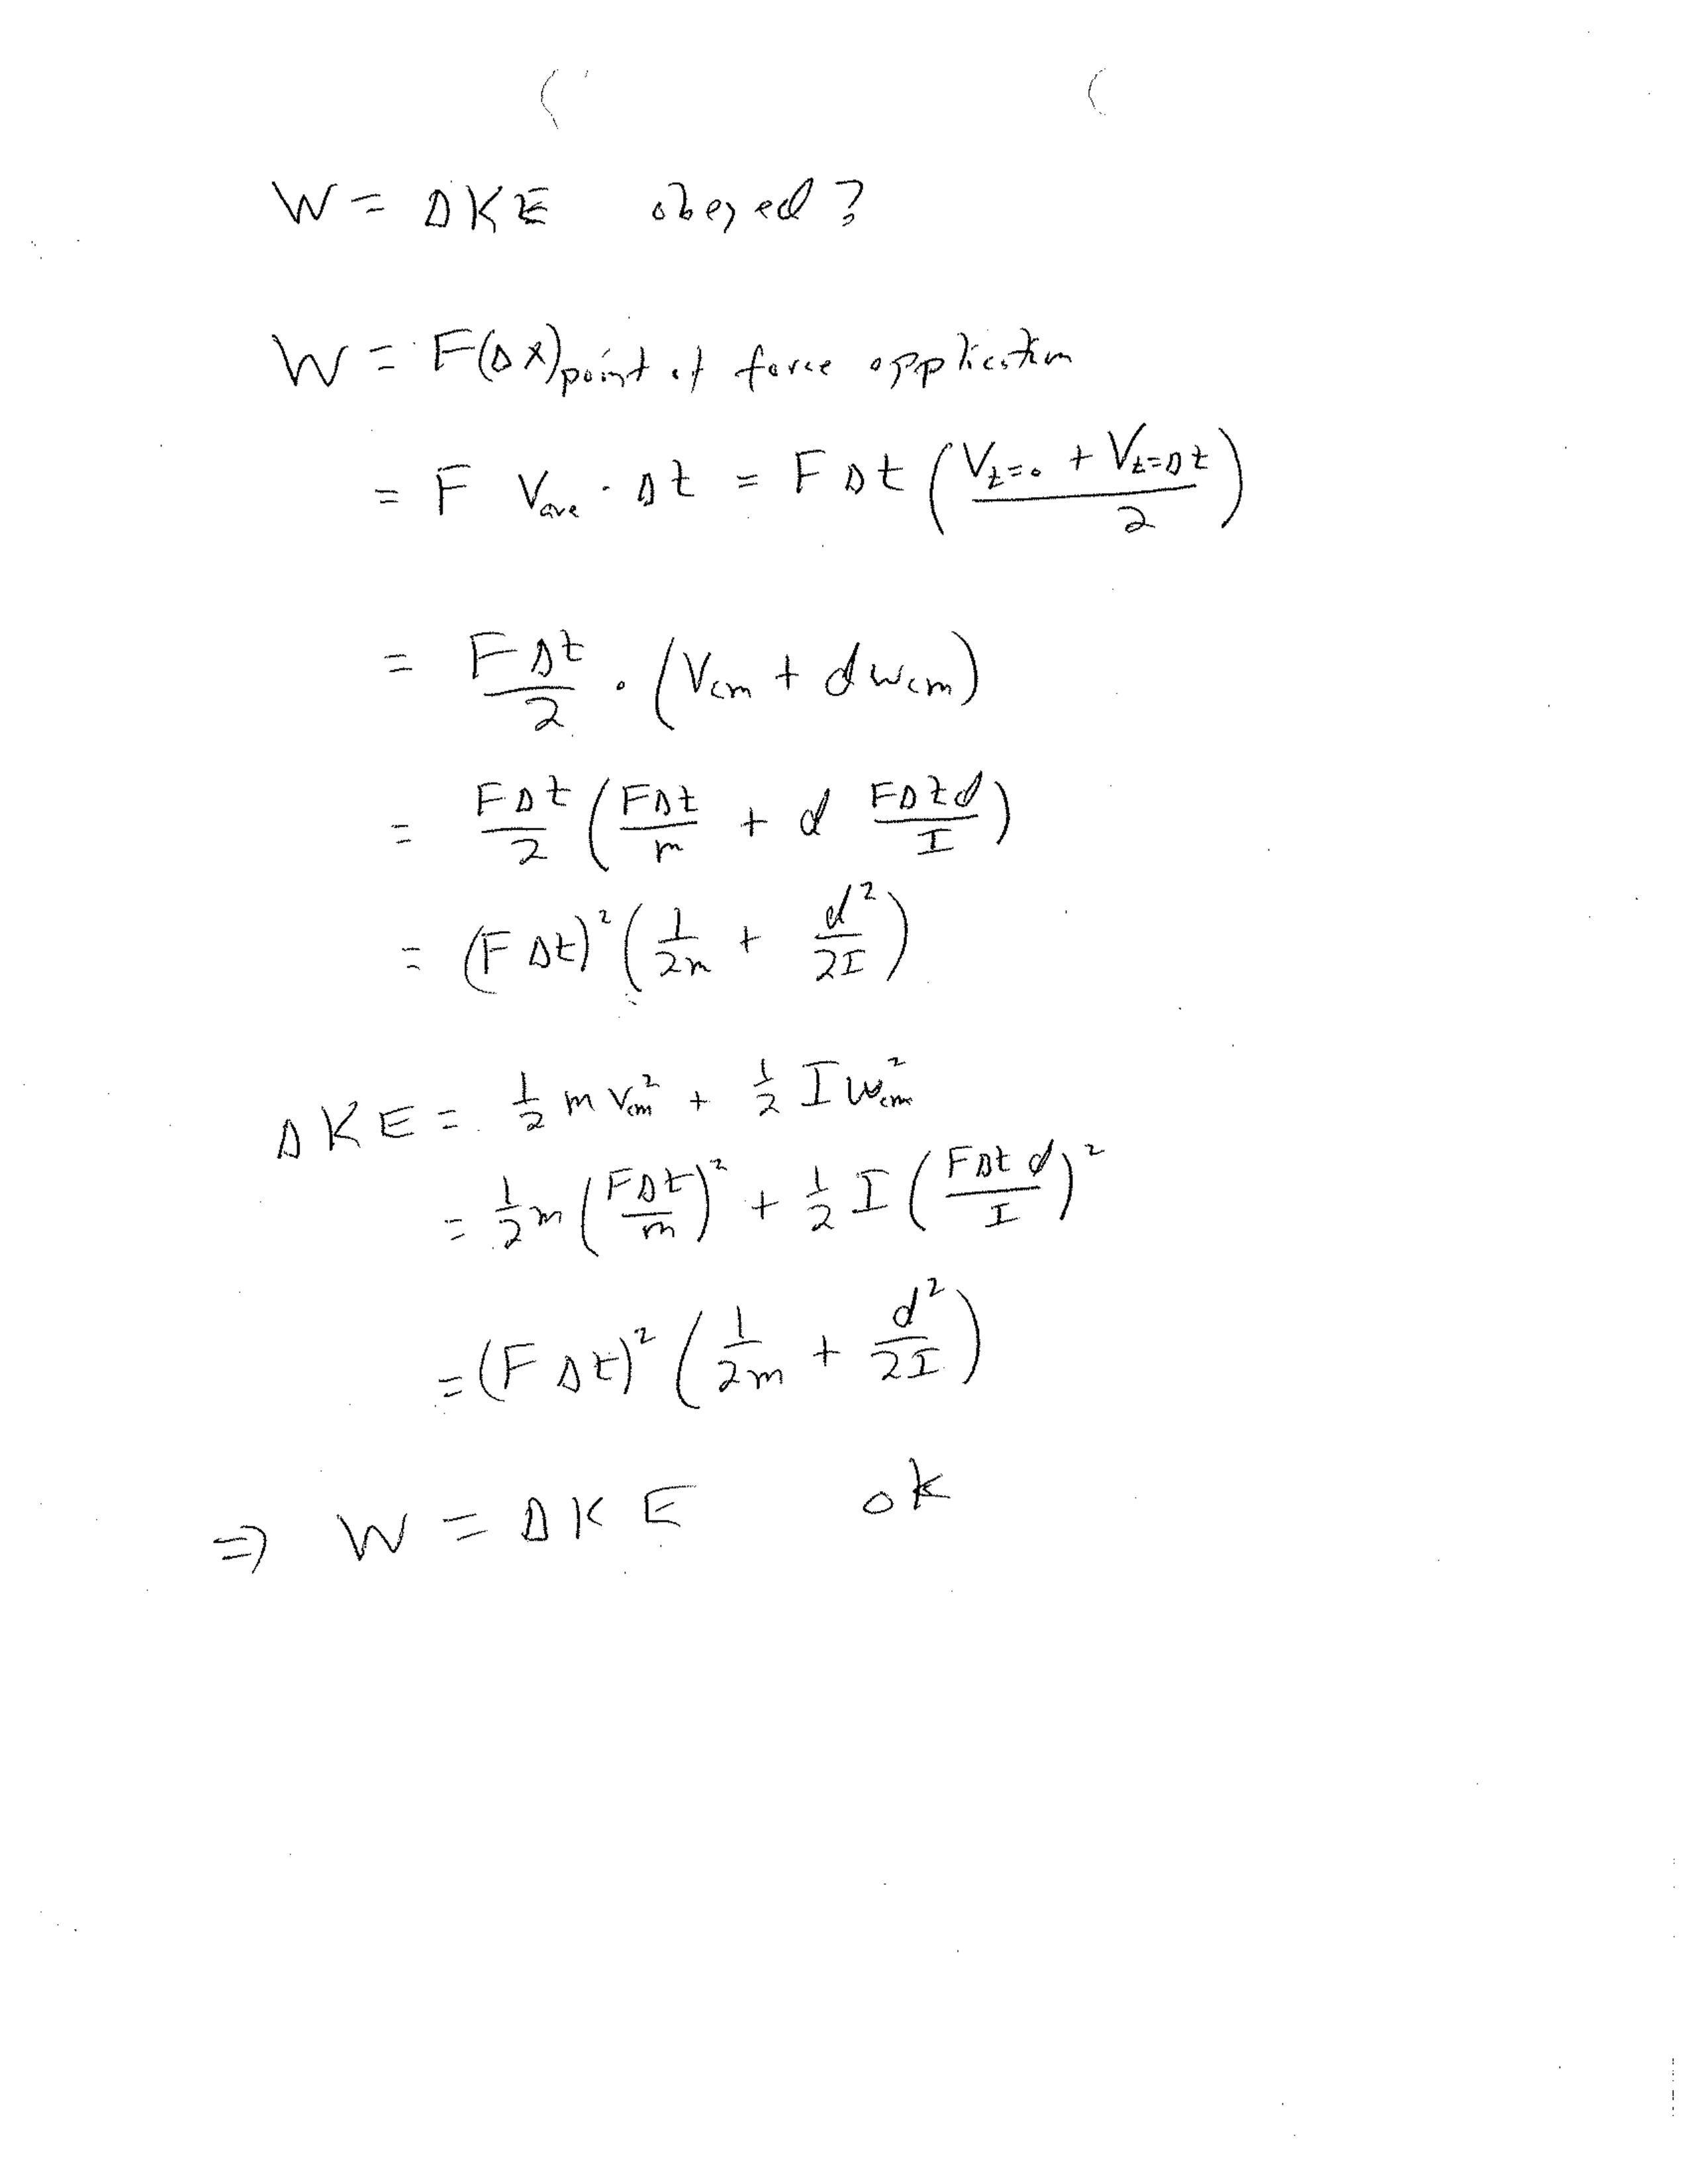 W = ΔKE obeyed?
W = F(Δx)point of force application
= F Vave · Δt = FΔt ((Vt=0 + Vt=Δt)/2)
= FΔt/2 · (Vcm + dωcm)
= FΔt/2 (FΔt/m + d FΔtd/I)
= (FΔt)² (1/2m + d²/2I)
ΔKE = 1/2 m Vcm² + 1/2 I ωcm²
= 1/2 m (FΔt/m)² + 1/2 I (FΔtd/I)²
= (FΔt)² (1/2m + d²/2I)
⇒ W = ΔKE ok